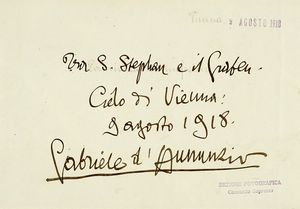 9 AGOSTO 1918
Tra S. Stephan e il Graben.
Cielo di Vienna:
9 agosto 1918.
Gabriele d'Annunzio
SEZIONE FOTOGRAFICA
Comando Supremo